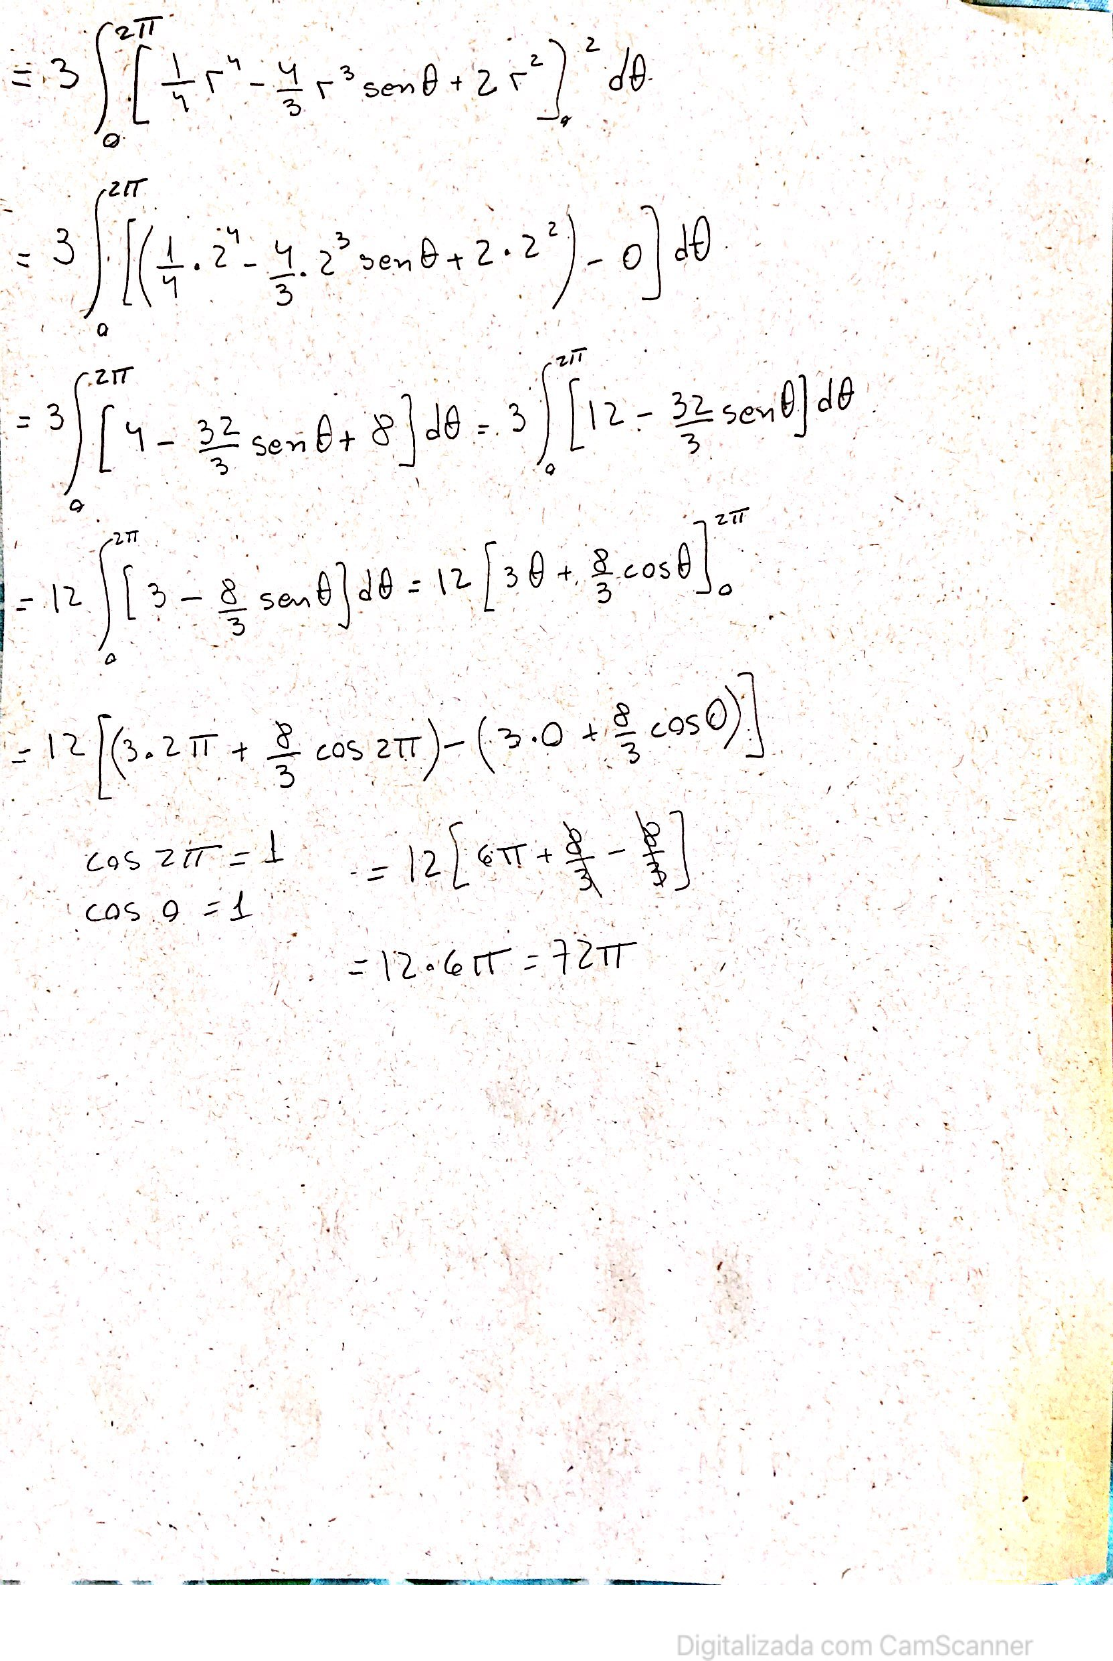 = 3 ∫₀^{2π} [ 1/4 r⁴ - 4/3 r³ senθ + 2r² ]₀² dθ.
= 3 ∫₀^{2π} [ ( 1/4 · 2⁴ - 4/3 · 2³ senθ + 2 · 2² ) - 0 ] dθ.
= 3 ∫₀^{2π} [ 4 - 32/3 senθ + 8 ] dθ = 3 ∫₀^{2π} [ 12 - 32/3 senθ ] dθ
= 12 ∫₀^{2π} [ 3 - 8/3 senθ ] dθ = 12 [ 3θ + 8/3 cosθ ]₀^{2π}
= 12 [ ( 3 · 2π + 8/3 cos 2π ) - ( 3 · 0 + 8/3 cos 0 ) ]
cos 2π = 1 = 12 [ 6π + 8/3 - 8/3 ]
cos 0 = 1
= 12 · 6π = 72π
Digitalizada com CamScanner